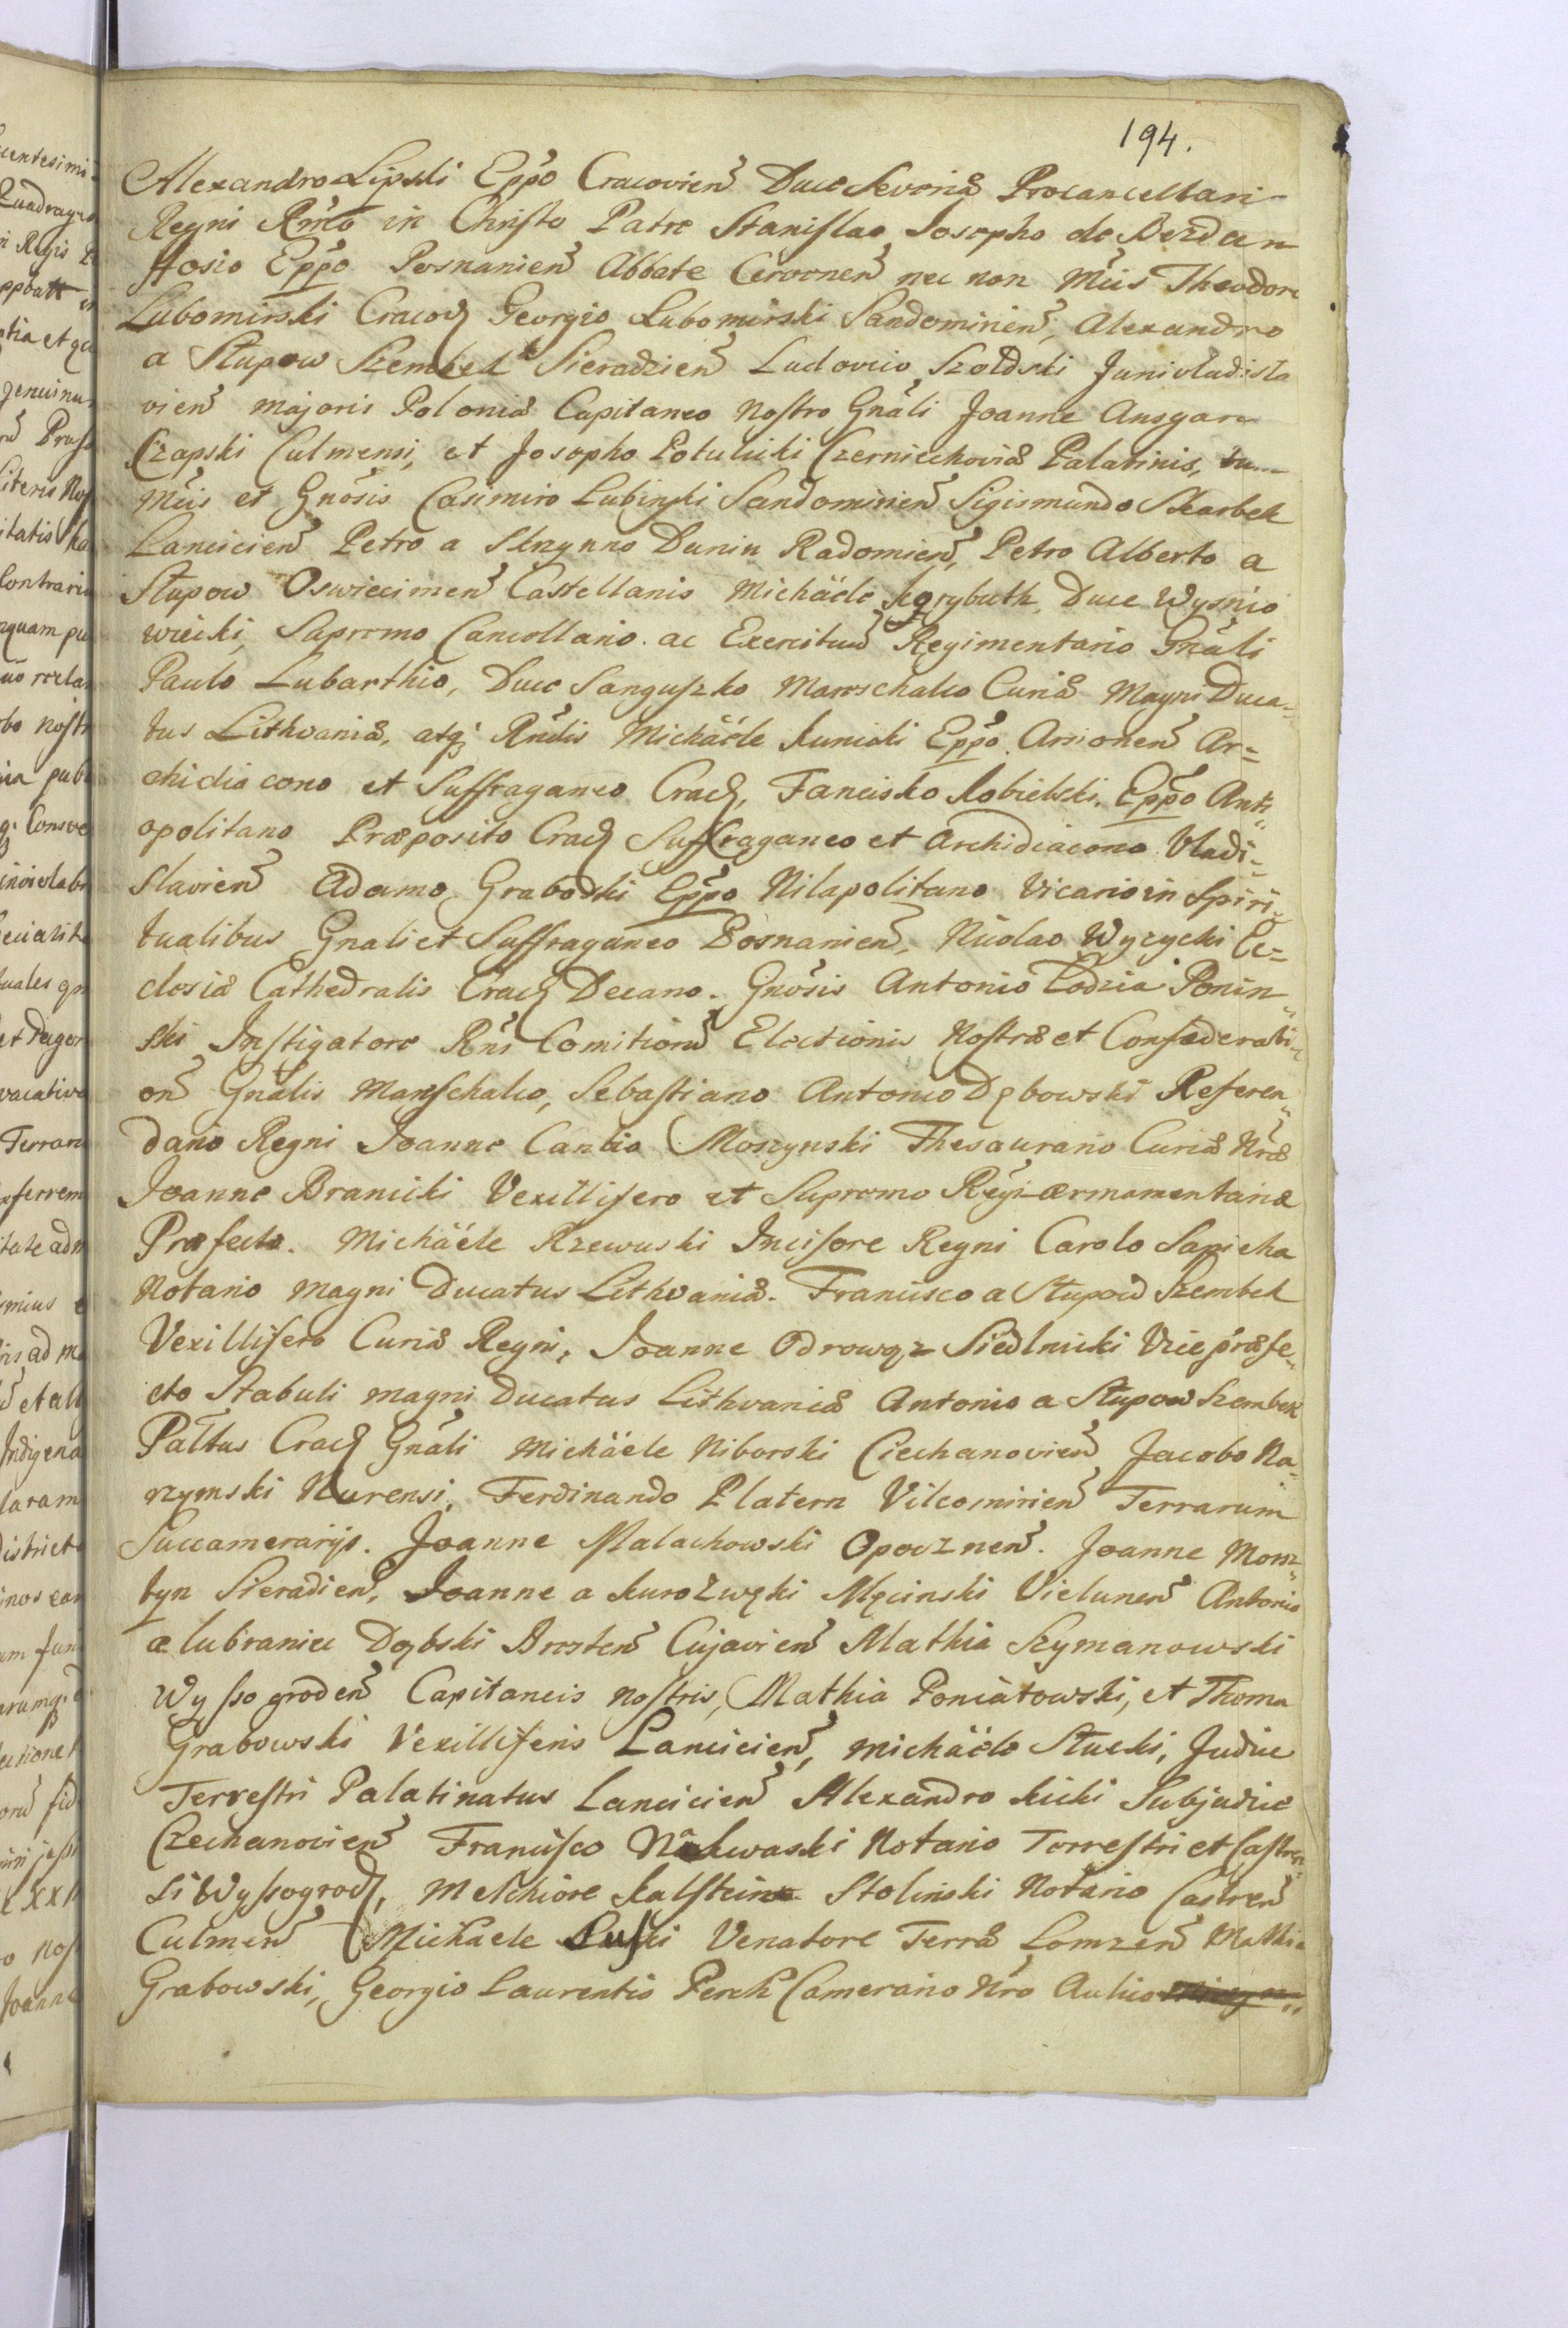 194.
Alexandro Lipski Eppo Cracovien Duce Severiæ Procancellari
Regni Rmo in Christo Patre Stanislao Josepho de Bezdan
Hosio Eppo Posnanien Abbate Cervonen nec non Mcis Theodore
Lubomirski Cracov Georgio Lubomirski Sandomirien, Alexandro
a Słupow Szembek Sieradzien Ludovico Szołdski Junivladisla
vien majoris Poloniæ Capitaneo Nostro Gnali Joanne Ansgar
Czapski Culmensi, et Josepho Potulicki Czerniechoviæ Palatinis, tu
Mcis et Gnosis Casimiro Lubinski Sandomirien Sigismundo Skarbek
Lancicien Petro a Skrzynno Dunin Radomien, Petro Alberto a
Słupow Oswiecimen Castellanis Michäele Korybuth Duce Wysnio
wiecki, Supremo Cancellario ac Exercituu Regimentario Gnali
Paulo Lubarthio, Duce Sanguszko Mareschalco Curiæ Magni Duca-
tus Lithvaniæ, atq Rndis Michäele Kunicki Eppo Arsionen Ar=
chidiacono et Suffraganeo Crac, Fancisko Kobielski, Eppo Anti
opolitano Præposito Crac Suffraganeo et Archidiacono Vladi=
slavien Adamo Grabowski Eppo Nilapolitano Vicario in Spiri
tualibus Gnali et Suffraganeo Posnanien, Nicolao Wyzycki Ec=
clesiæ Cathedralis Crac Decano. Gnosis Antonio Łodzia Ponin
ski Instigatore Rni Comitioru Electionis Nostræ et Confæderati
on Gnalis Marschalco, Sebastiano Antonio Dębowski Referen
dario Regni Joanne Cantio Moszynski Thesaurario Curiæ Nræ
Joanne Branicki Vexillifero et Supremo Regi armamentariæ
Præfecto. Michäele Rzewuski Incisore Regni Carolo Sapieha
Notario Magni Ducatus Lithvaniæ. Francisco a Słupow Szembek
Vexillifero Curiæ Regni, Joanne Odrowąz Siedlnicki Vice præfe
cto Stabuli magni Ducatus Lithvaniæ Antonio a Słupow Szembek
Palttus Crac Gnali Michäele Niborski Ciechanovien Jacobo Na
rzymski Nurensi, Ferdinando Platern Vilcomirien Terrarum
Succamerarijs. Joanne Małachowski Opocznen. Joanne Mora
tyn Sieradien, Joanne a Kurozwęki Męcinski Vielunen Antonio
a Lubraniec Dąbski Brzesten Cujavien Mathia Szymanowski
Wyssogroden Capitaneis nostris, Mathia Poniatowski, et Thoma
Grabowski Vexilliferis Lancicien, Michäele Stucki, Judice
Terrestri Palatinatus Lancicien Alexandro Kicki Subjudice
Czechanovien Francisco Nakwaski Notario Terrestri et Castren
si Wyssogrod, Melchiore Kalstein Stolinski Notario Castren
Culmen Michäele Luski Venatore Terræ Łomzen Mathia
Grabowski, Georgio Laurentio Perch Camerario Nro Aulico